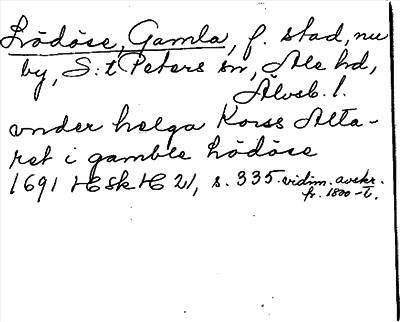 Lödöse, Gamla, f. stad, nu
by, S:t Peters sn, Ale hd,
Älvsb. l.
vnder helga Korss Alta-
ret i gamble Lödöse
1691 HSH 21, s. 335. vidim. avskr.
fr. 1800-t.